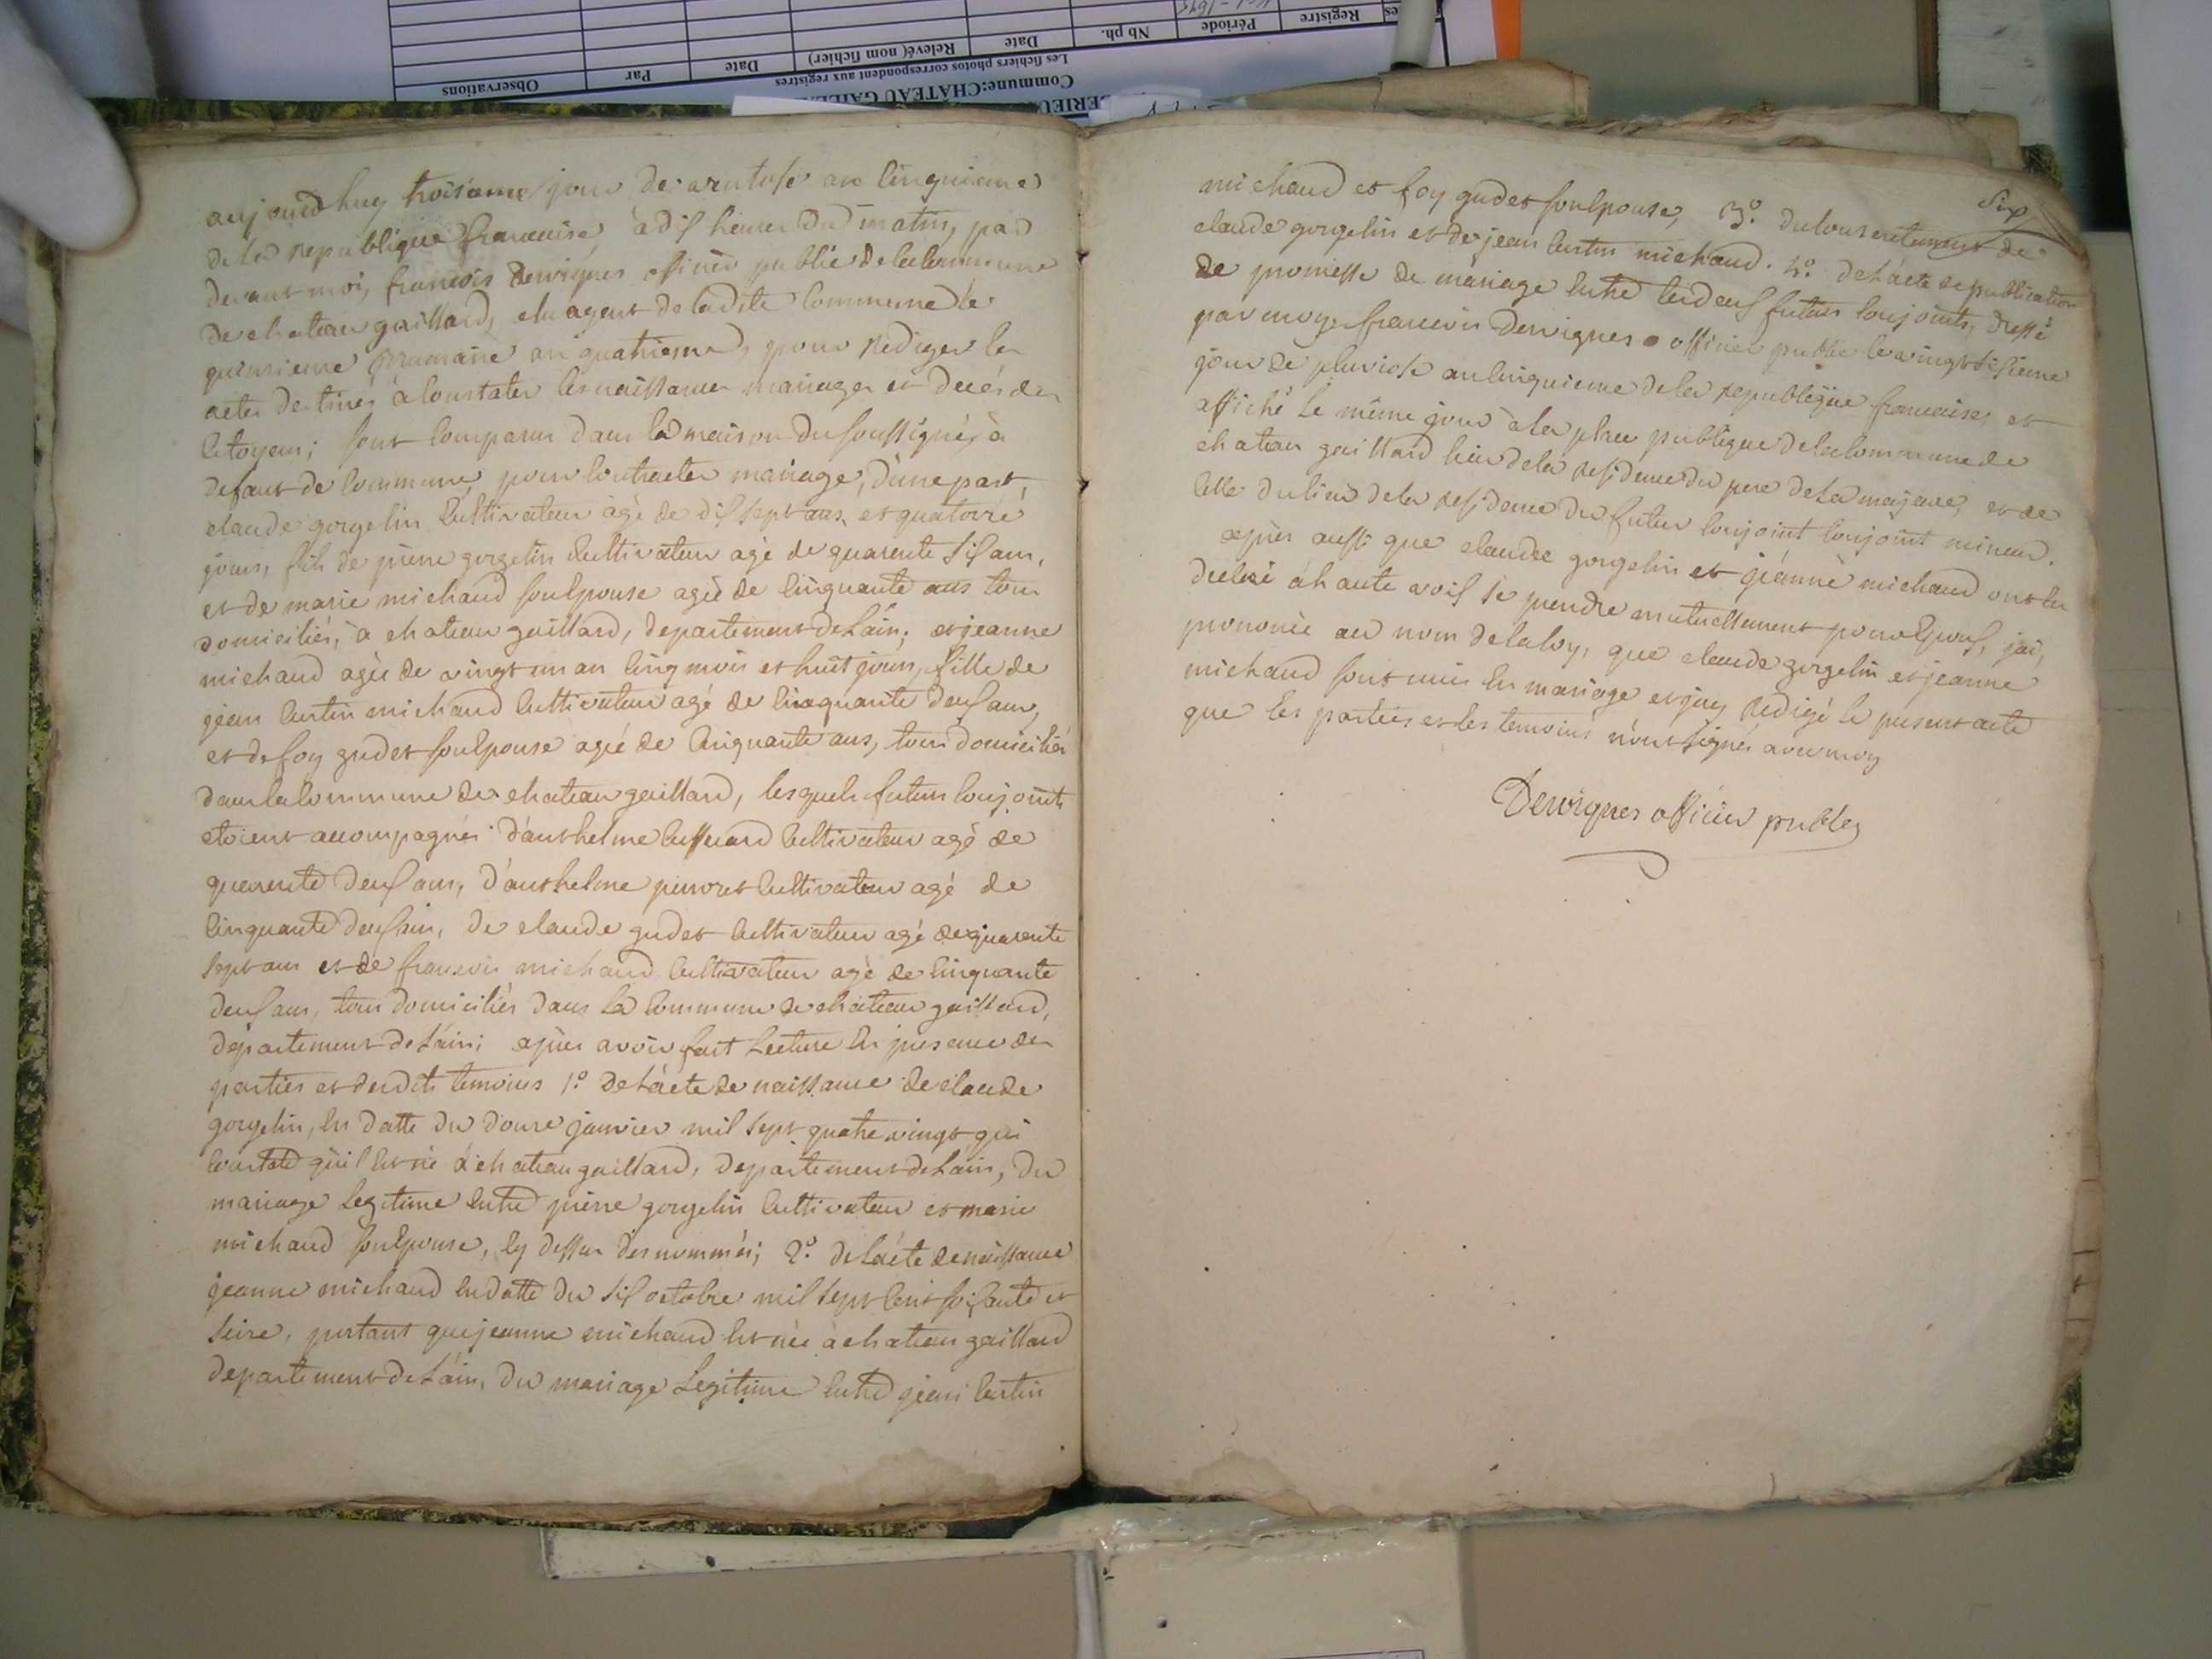 Observations
Par
Date
Relevé( nom fichier)
Date
Nb ph.
Période
Registre
Les fichiers photos correspondent aux registres
Commune:CHÂTEAU GAILL
aujourdhuy troisieme jour de ventose an cinquieme
de la republique francaise, à dix heures du matin, par
devant moi, francois Dervignes officier public de la commune
de chateau gaillard, elu agent de ladite commune le
quinzieme brumaire an quatrieme, pour rediger les
actes destinés à constater les naissances mariages et decés des
citoyens; sont comparus dans la maison du soussigné, à
defaut de commune, pour contracter mariage, d'une part,
claude gorgelin cultivateur agé de dix sept ans, et quatorze
jours, fils de pierre gorgelin cultivateur agé de quarente six ans,
et de marie michaud son epouse agée de cinquante ans tous
domiciliés, à chateau gaillard, departement de L'ain; et jeanne
michaud agée de vingt un an cinq mois et huit jours, fille de
jean michaud cultivateur agé de cinquante deux ans,
et de foy gudet son epouse agée de cinquante ans, tous domiciliés
dans la commune de chateau gaillard, lesquels futurs conjoints
etoient accompagnés d'anthelme cultivateur agé de
quarente deux ans, d'anthelme cultivateur agé de
cinquante deux ans, de claude gudet cultivateur agé de quarente
sept ans et de francois michaud cultivateur agé de cinquante
deux ans, tous domiciliés dans la commune de chateau gaillard,
departement de L'ain; apres avoir fait Lecture en presence des
parties et desdits temoins 1.° de L'acte de naissance de claude
gorgelin, en datte du douze janvier mil sept quatre vingt qui
constate qu'il est né à chateau gaillard, departement de L'ain, du
mariage Legitime entre pierre gorgelin cultivateur et marie
michaud son epouse, cy dessus denommés; 2.° de L'acte de naissance
jeanne michaud en datte du six octobre mil sept cent soixante et
seize, portant que jeanne michaud est née à chateau gaillard
departement de L'ain, du mariage Legitime entre jean
six
michaud et foy gudet son epouse, 3.° du consentement de
claude gorgelin et de jean michaud. 4.° de L'acte de publication
de promesse de mariage entre les deux futurs conjoints, dressé
par moy francois Dervignes officier public le vingt sixieme
jour de pluviose an cinquieme de la republique francaise, et
affiché le même jour à la place publique de la commune de
chateau gaillard lieu de la residence du pere de la majeure, et de
celle du lieu de la residence du futur conjoint conjoint mineur.
apres aussi que claude gorgelin et jeanne michaud ont eu
declaré à haute voix se prendre mutuellement pour epoux, j'ai
prononcé au nom de la loy, que claude gorgelin et jeanne
michaud sont unis en mariage et j'ay redigé le present acte
que les parties et les temoins n'ont signés avec moy
Dervignes officier public